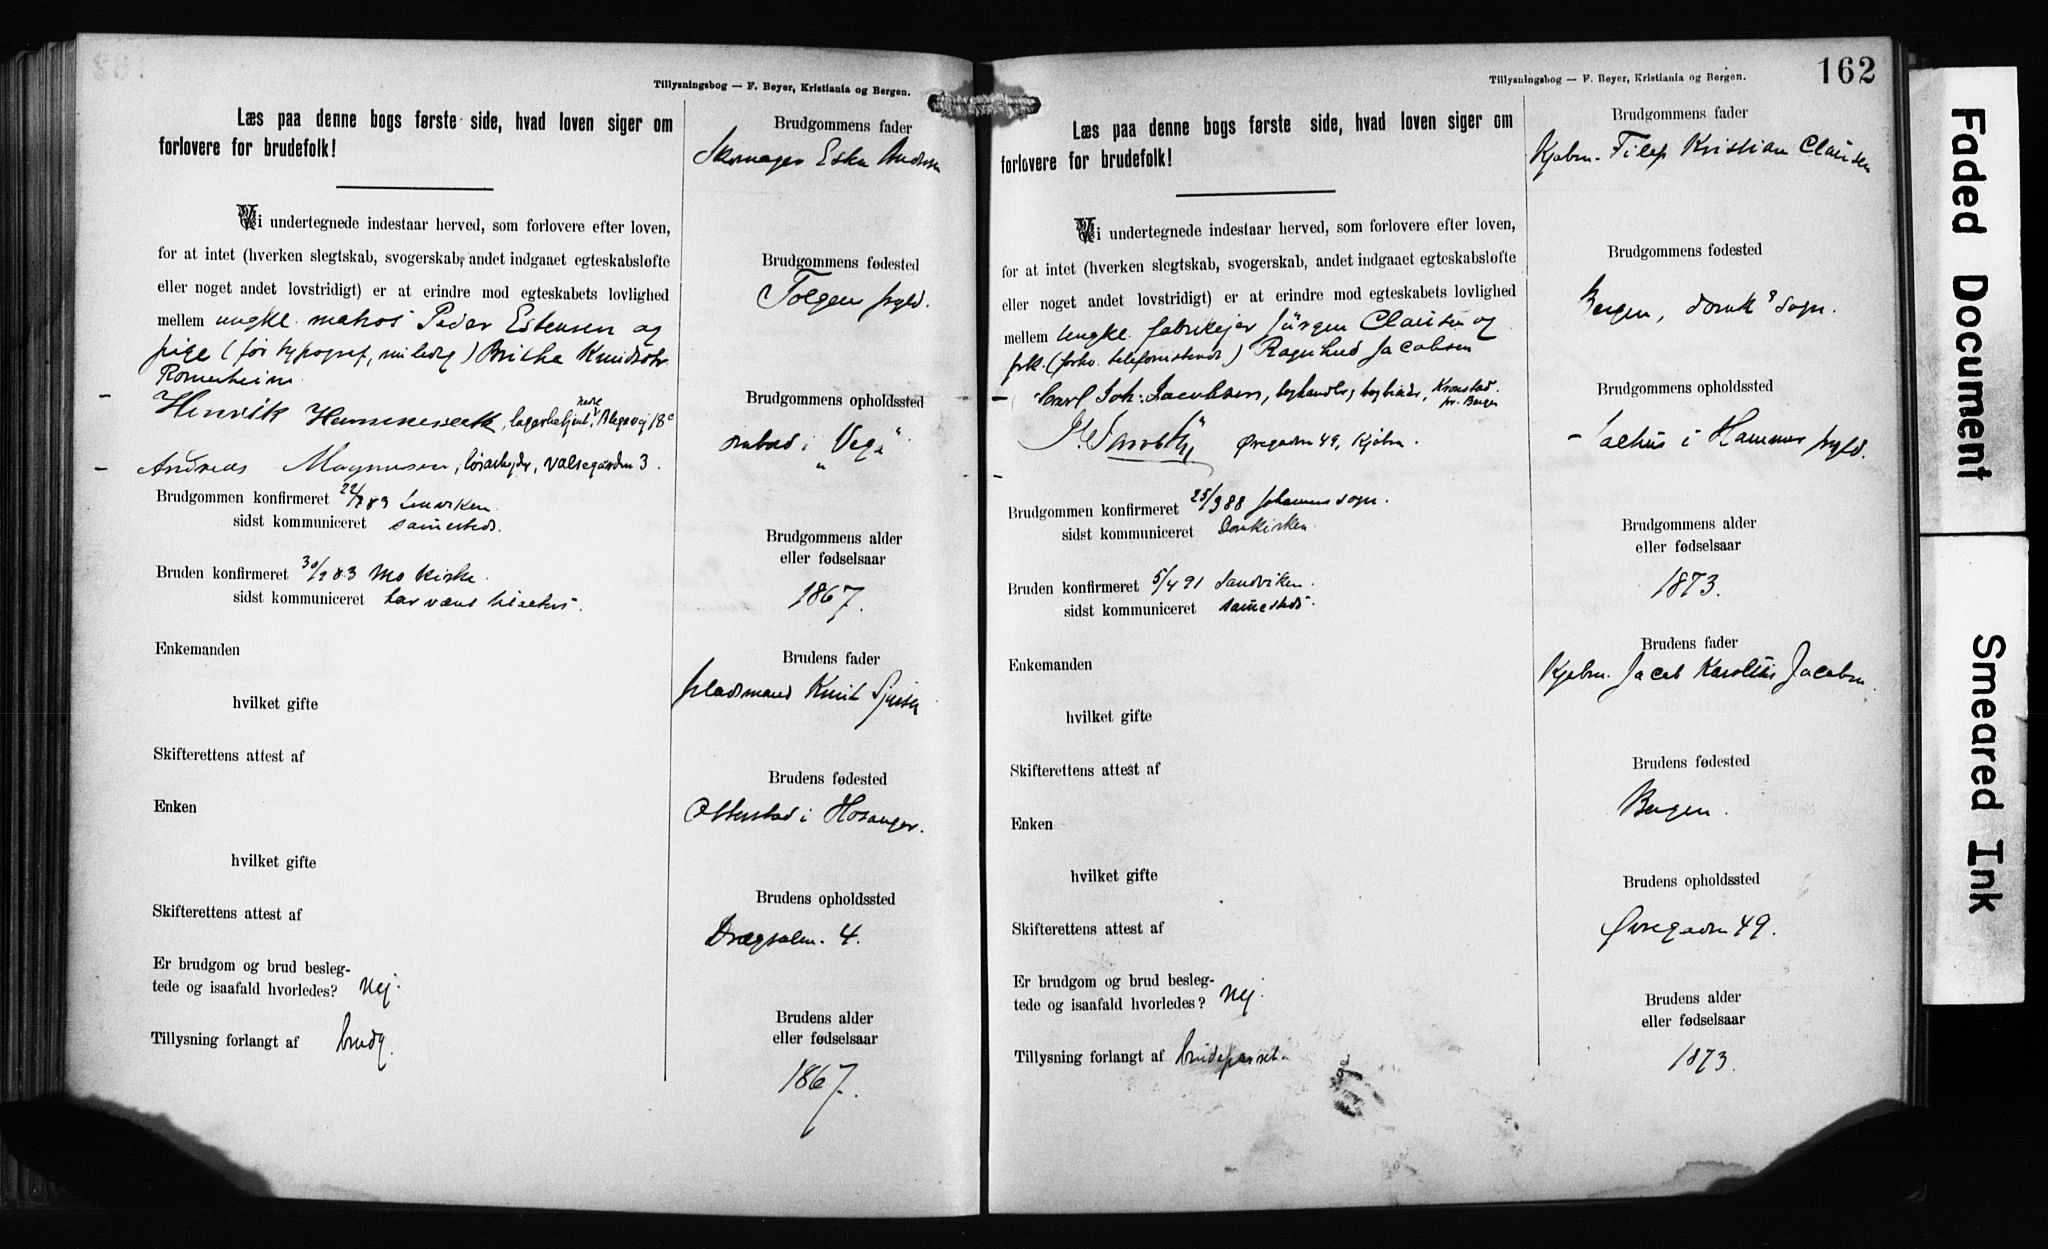 Tillysningsbog — F. Beyer, Kristiania og Bergen.
Læs paa denne bogs første side, hvad loven siger om
forlovere for brudefolk!
Vi undertegnede indestaar herved, som forlovere efter loven,
for at intet (hverken slegtskab, svogerskab, andet indgaaet egteskabsløfte
eller noget andet lovstridigt) er at erindre mod egteskabets lovlighed
mellem ungkl. matros Peder Estensen og
pige (før typograf, nu ledig) Brithe Knudsdtr
Romarheim
Henrik Hammersvik, lagerbetjent, Blegevej 18c
Andreas Magnusen, løsarbejder, Valsegården 3.
Brudgommen konfirmeret 22/ 83
sidst kommuniceret samesteds.
Bruden konfirmeret 30/9 83 Mo Kirke.
sidst kommuniceret har været tilalters.
Enkemanden
hvilket gifte
Skifterettens attest af
Enken
hvilket gifte
Skifterettens attest af
Er brudgom og brud besleg-
tede og isaafald hvorledes? Nej.
Tillysning forlangt af brudg.
Brudgommens fader
Skomager Andersen
Brudgommens fødested
Tolgen prgld.
Brudgommens opholdssted
ombord i "Vega"
Brudgommens alder
eller fødselsaar
1867.
Brudens fader
pladsmand Knut
Brudens fødested
i Hosanger.
Brudens opholdssted
Drægsalm. 4.
Brudens alder
eller fødselsaar
1867.
162
Tillysningsbog — F. Beyer, Kristiania og Bergen.
Læs paa denne bogs første side, hvad loven siger om
forlovere for brudefolk!
Vi undertegnede indestaar herved, som forlovere efter loven,
for at intet (hverken slegtskab, svogerskab, andet indgaaet egteskabsløfte
eller noget andet lovstridigt) er at erindre mod egteskabets lovlighed
mellem Ungkl. fabrikejer Jürgen Clausen og
frk. (forhv. telefonistinde) Ragnhild Jacobsen
Carl Joh. Jacobsen, boghandler, bogbinder, Kronstad pr. Bergen
Øvregaden 49, Kjøbm.
Brudgommen konfirmeret 25/3 88 Johannes sogn.
sidst kommuniceret Domkirken
Bruden konfirmeret 5/4 91 Sandviken.
sidst kommuniceret samesteds.
Enkemanden
hvilket gifte
Skifterettens attest af
Enken
hvilket gifte
Skifterettens attest af
Er brudgom og brud besleg-
tede og isaafald hvorledes? Nej.
Tillysning forlangt af brudeparret.
Brudgommens fader
Kjøbm. Filip Kristian Clausen
Brudgommens fødested
Bergen, domk. sogn.
Brudgommens opholdssted
i Hammer prgld.
Brudgommens alder
eller fødselsaar
1873.
Brudens fader
Kjøbm. Jacob Karolius Jacobsen.
Brudens fødested
Bergen.
Brudens opholdssted
Øvregaden 49.
Brudens alder
eller fødselsaar
1873.
Faded Document
Smeared Ink